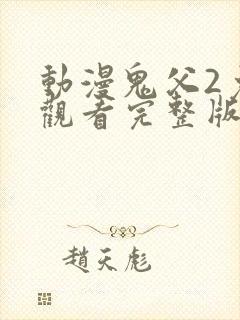 動漫鬼父2
觀看完整版
趙天彪